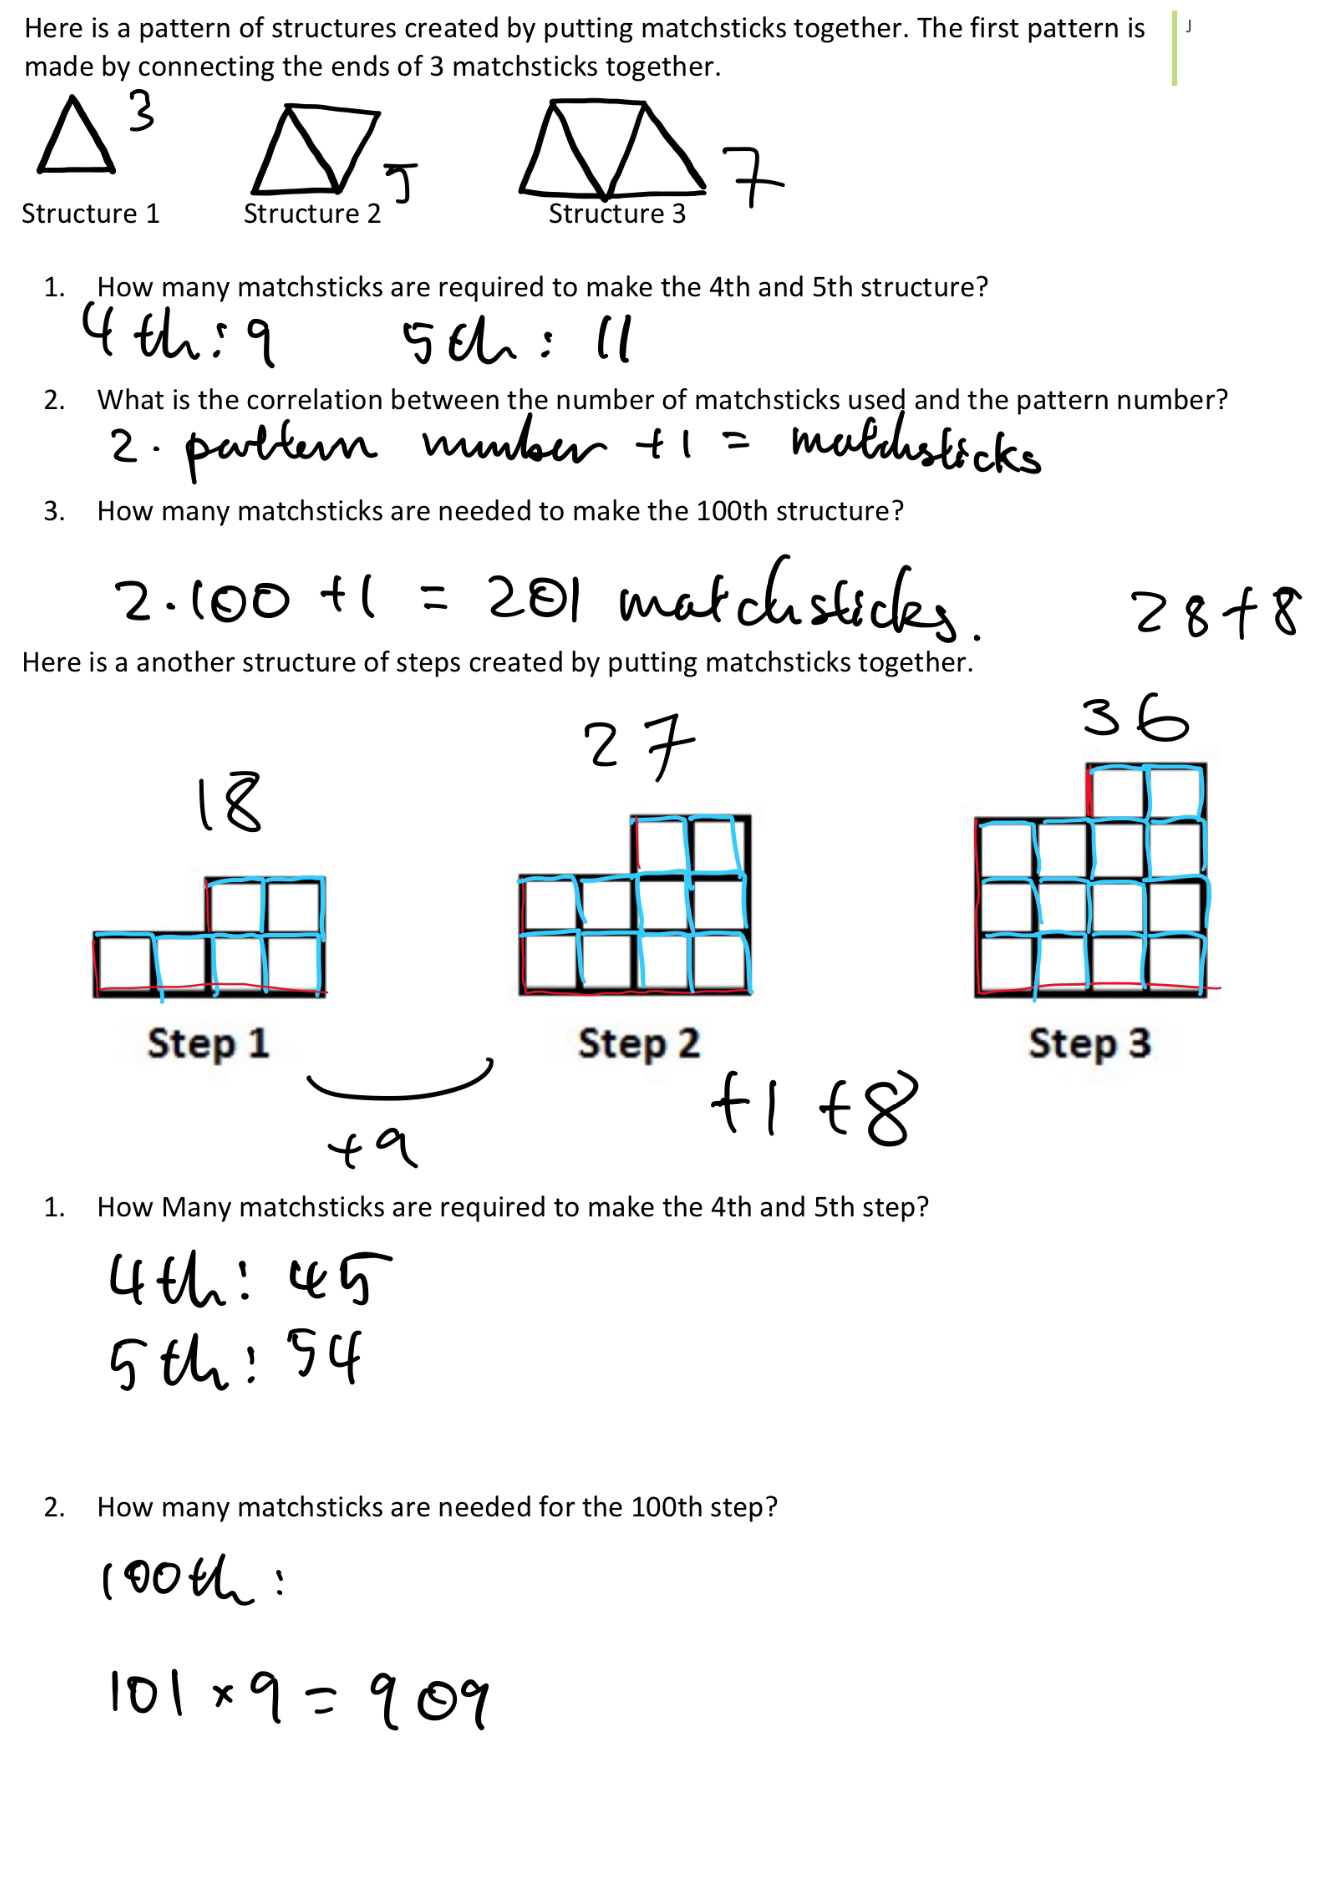 Here is a pattern of structures created by putting matchsticks together. The first pattern is
made by connecting the ends of 3 matchsticks together.
J
3
5
7
Structure 1
Structure 2
Structure 3
1. How many matchsticks are required to make the 4th and 5th structure?
4th: 9 5th: 11
2. What is the correlation between the number of matchsticks used and the pattern number?
2. pattern number +1 = matchsticks
3. How many matchsticks are needed to make the 100th structure?
2.100 +1 = 201 matchsticks.
28+8
Here is a another structure of steps created by putting matchsticks together.
18
27
36
Step 1
Step 2
Step 3
+9
+1 +8
1. How Many matchsticks are required to make the 4th and 5th step?
4th: 45
5th: 54
2. How many matchsticks are needed for the 100th step?
100th:
101 × 9 = 909